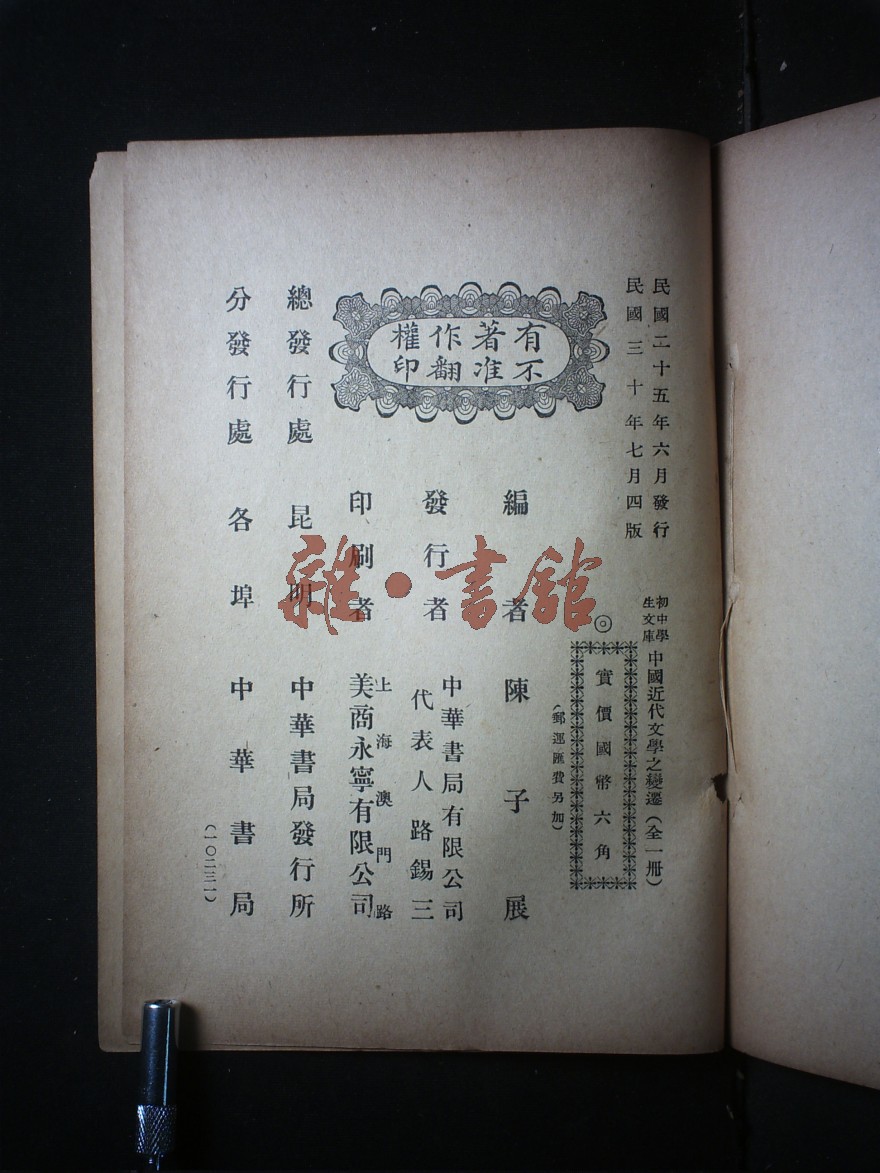 民國二十五年六月發行
民國三十年七月四版
初中學生文庫
中國近代文學之變遷（全一冊）
◎
實價國幣六角
（郵運匯費另加）
有著作權
不准翻印
編者 陳子展
發行者
中華書局有限公司
代表人路錫三
印刷者
上海澳門路
美商永寧有限公司
總發行處 昆明 中華書局發行所
分發行處 各埠 中華書局
（一〇二三一）
雜·書館